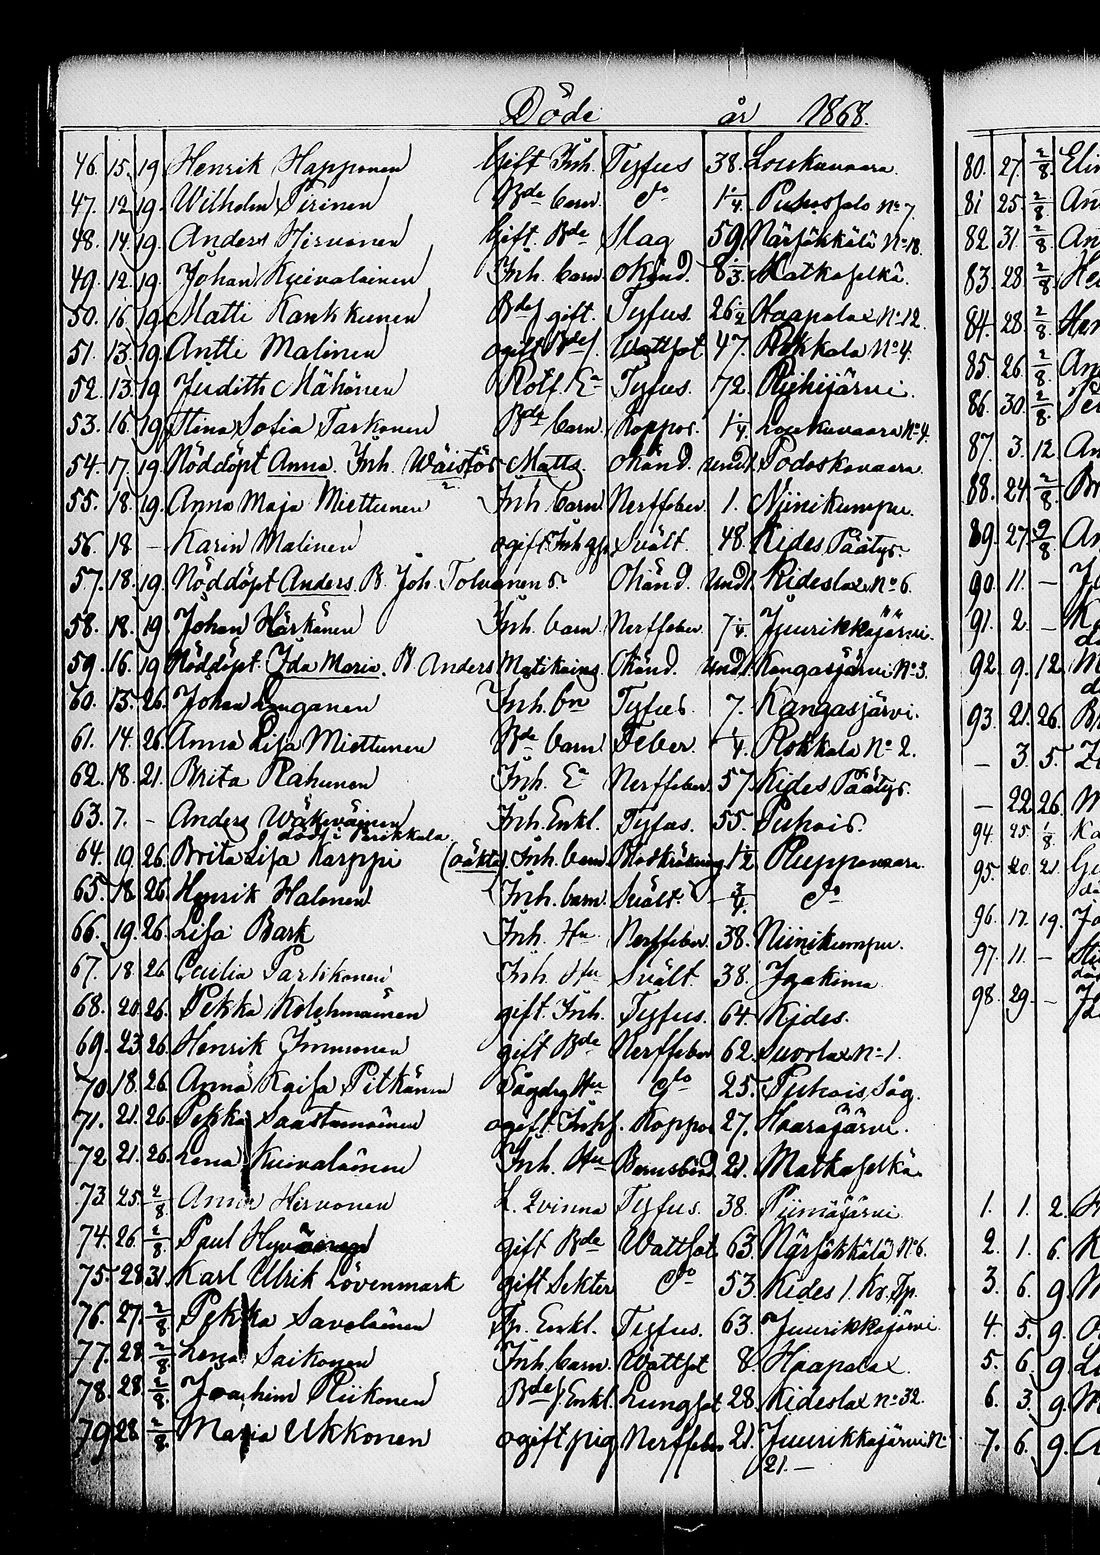 Döde år 1868.
46. 15. 19 Henrik Happonen Gift Inh. Tyfus 38. Loukunvaara.
47. 12 19. Wilhelm Pirinen Bde barn do 1/4. Puhossalo No 7.
48. 14. 19. Anders Hirvonen Gift. Bde Slag 59. Närsäkkälä No 18.
49. 12. 19. Johan Kuivalainen Inh. barn okänd. 8 1/3. Matkaselkä.
50. 16. 19 Matti Kankkunen Bdes gift. Tyfus. 26 1/2 Haapalax No 12.
51. 13. 19 Antti Malinen ogift Bdes. Wattsot 47. Rokkala No 4.
52. 13. 19 Judith Mähönen Rotf. Ea Tyfus. 72. Riihijärvi.
53. 15. 19 Stina Sofia Tarkonen Bde barn Koppor. 1/4. Loukunvaara No 4.
54. 17. 19. Nöddöpt Anna. Inh. Matts okänd. und. Podoskavaara.
55. 18. 19. Anna Maja Miettunen Inh. barn Nerffeber 1. Niinikumpu.
56. 18 — Karin Malinen ogift Inh Svält. 48. Kides Päätys.
57. 18. 19. Nöddöpt Anders B. Joh. Tolvanens Okänd. und. Kideslax No 6.
58. 18. 19 Johan Härkönen Inh. barn. Nerffeber. 7 1/4. Juurikkajärvi.
59. 16. 19 Nöddöpt. Ida Maria. B. Anders Matikains Okänd. und. Kangasjärvi No 3.
60. 15. 26. Johan Inh. bn Tyfus. 7. Kangasjärvi.
61. 14. 26. Anna Lisa Miettunen Bde barn Feber. 1/4. Rokkala No 2.
62. 18. 21. Brita Rahunen Inh. Ea Nerffeber. 57. Kides Päätys.
63. 7. - Anders Wäkeväinen Inh. Enkl. Tyfus. 55. Puhois.
död i Parikkala
64. 19. 26. Brita Lisa Karppi (oäkta) Inh. barn 1 1/2 Ruppovaara.
65. 18. 26. Henrik Halonen Inh. barn Svält. 3/4. do
66. 19. 26. Lisa Bark Inh. Hu Nerffeber. 38. Niinikumpu.
67. 18. 26 Cecilia Partikonen Inh. Hu Svält. 38. Jaakima
68. 20. 26. Pekka Kolehmainen gift. Inh. Tyfus. 64. Kides.
69. 23. 26. Henrik Immonen gift Bde Nerffeber 62. Suorlax No 1.
70. 18. 26. Anna Kaisa Pitkänen Hu do 25. Puhois, Såg.
71. 21. 26. Pekka Saastamoinen ogift. Inhs. Koppor 27. Haarajärvi.
72. 21. 26. Lena Kuivalainen Inh. Hu Barnsbörd. 21. Matkaselkä.
73. 25. 2/8 Anna Hirvonen L. qvinna Tyfus. 38. Piimäjärvi.
74. 26. 2/8 Paul gift Bde Wattsot. 63. Närsäkkälä No 6.
75. 28. 31. Karl Ulrik Lövenmark gift Sekter do 53. Kides 1. Kr. Tp.
76. 27. 2/8 Pekka Savolainen Tp. Enkl. Tyfus. 63. Juurikkajärvi.
77. 28 2/8 Lena Saikonen Inh. barn Wattsot 8. Haapalax.
78. 28 2/8 Joachim Riikonen Bdes Enkl. Lungsot 28. Kideslax No 32.
79. 28. 2/8. Maria Ukkonen ogift pig. Nerffeber 21. Juurikkajärvi No
21. —
80. 27. 2/8
81 25. 2/8
82. 31. 2/8
83. 28 2/8
84. 28. 2/8
85. 26 2/8
86. 30. 2/8
87. 3. 12.
88. 24. 2/8
89. 27. 2/8
90. 11. —
91. 2. —
92. 9. 12
93. 21. 26.
— 3. 5.
— 22. 26.
94. 25. 1/8
95 20. 21.
96. 17. 19.
97. 11. —
98. 29. —
1. 1. 2.
2. 1. 6.
3. 6. 9.
4. 5. 9.
5. 6. 9.
6. 3. 9.
7. 6. 9.